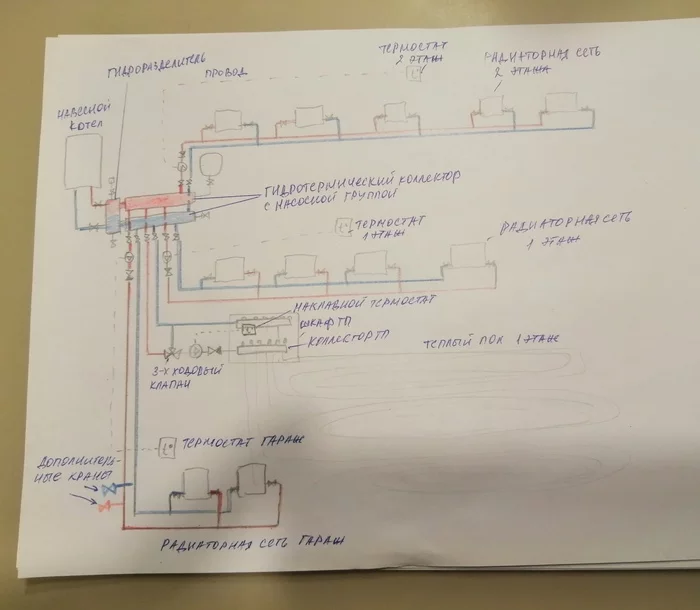 ГИДРОРАЗДЕЛИТЕЛЬ
ПРОВОД
ТЕРМОСТАТ
2 ЭТАЖ
РАДИАТОРНАЯ СЕТЬ
2 ЭТАЖА
НАВЕСНОЙ
КОТЕЛ
t°
ГИДРОТЕРМИЧЕСКИЙ КОЛЛЕКТОР
С НАСОСНОЙ ГРУППОЙ
t°
ТЕРМОСТАТ
1 ЭТАЖ
РАДИАТОРНАЯ СЕТЬ
1 ЭТАЖ
НАКЛАДНОЙ ТЕРМОСТАТ
ШКАФ ТП
t°
КОЛЛЕКТОР ТП
ТЕПЛЫЙ ПОЛ 1 ЭТАЖ
3-Х ХОДОВЫЙ
КЛАПАН
t°
ТЕРМОСТАТ ГАРАЖ
ДОПОЛНИТЕЛЬ-
НЫЕ КРАНЫ
РАДИАТОРНАЯ СЕТЬ ГАРАЖ